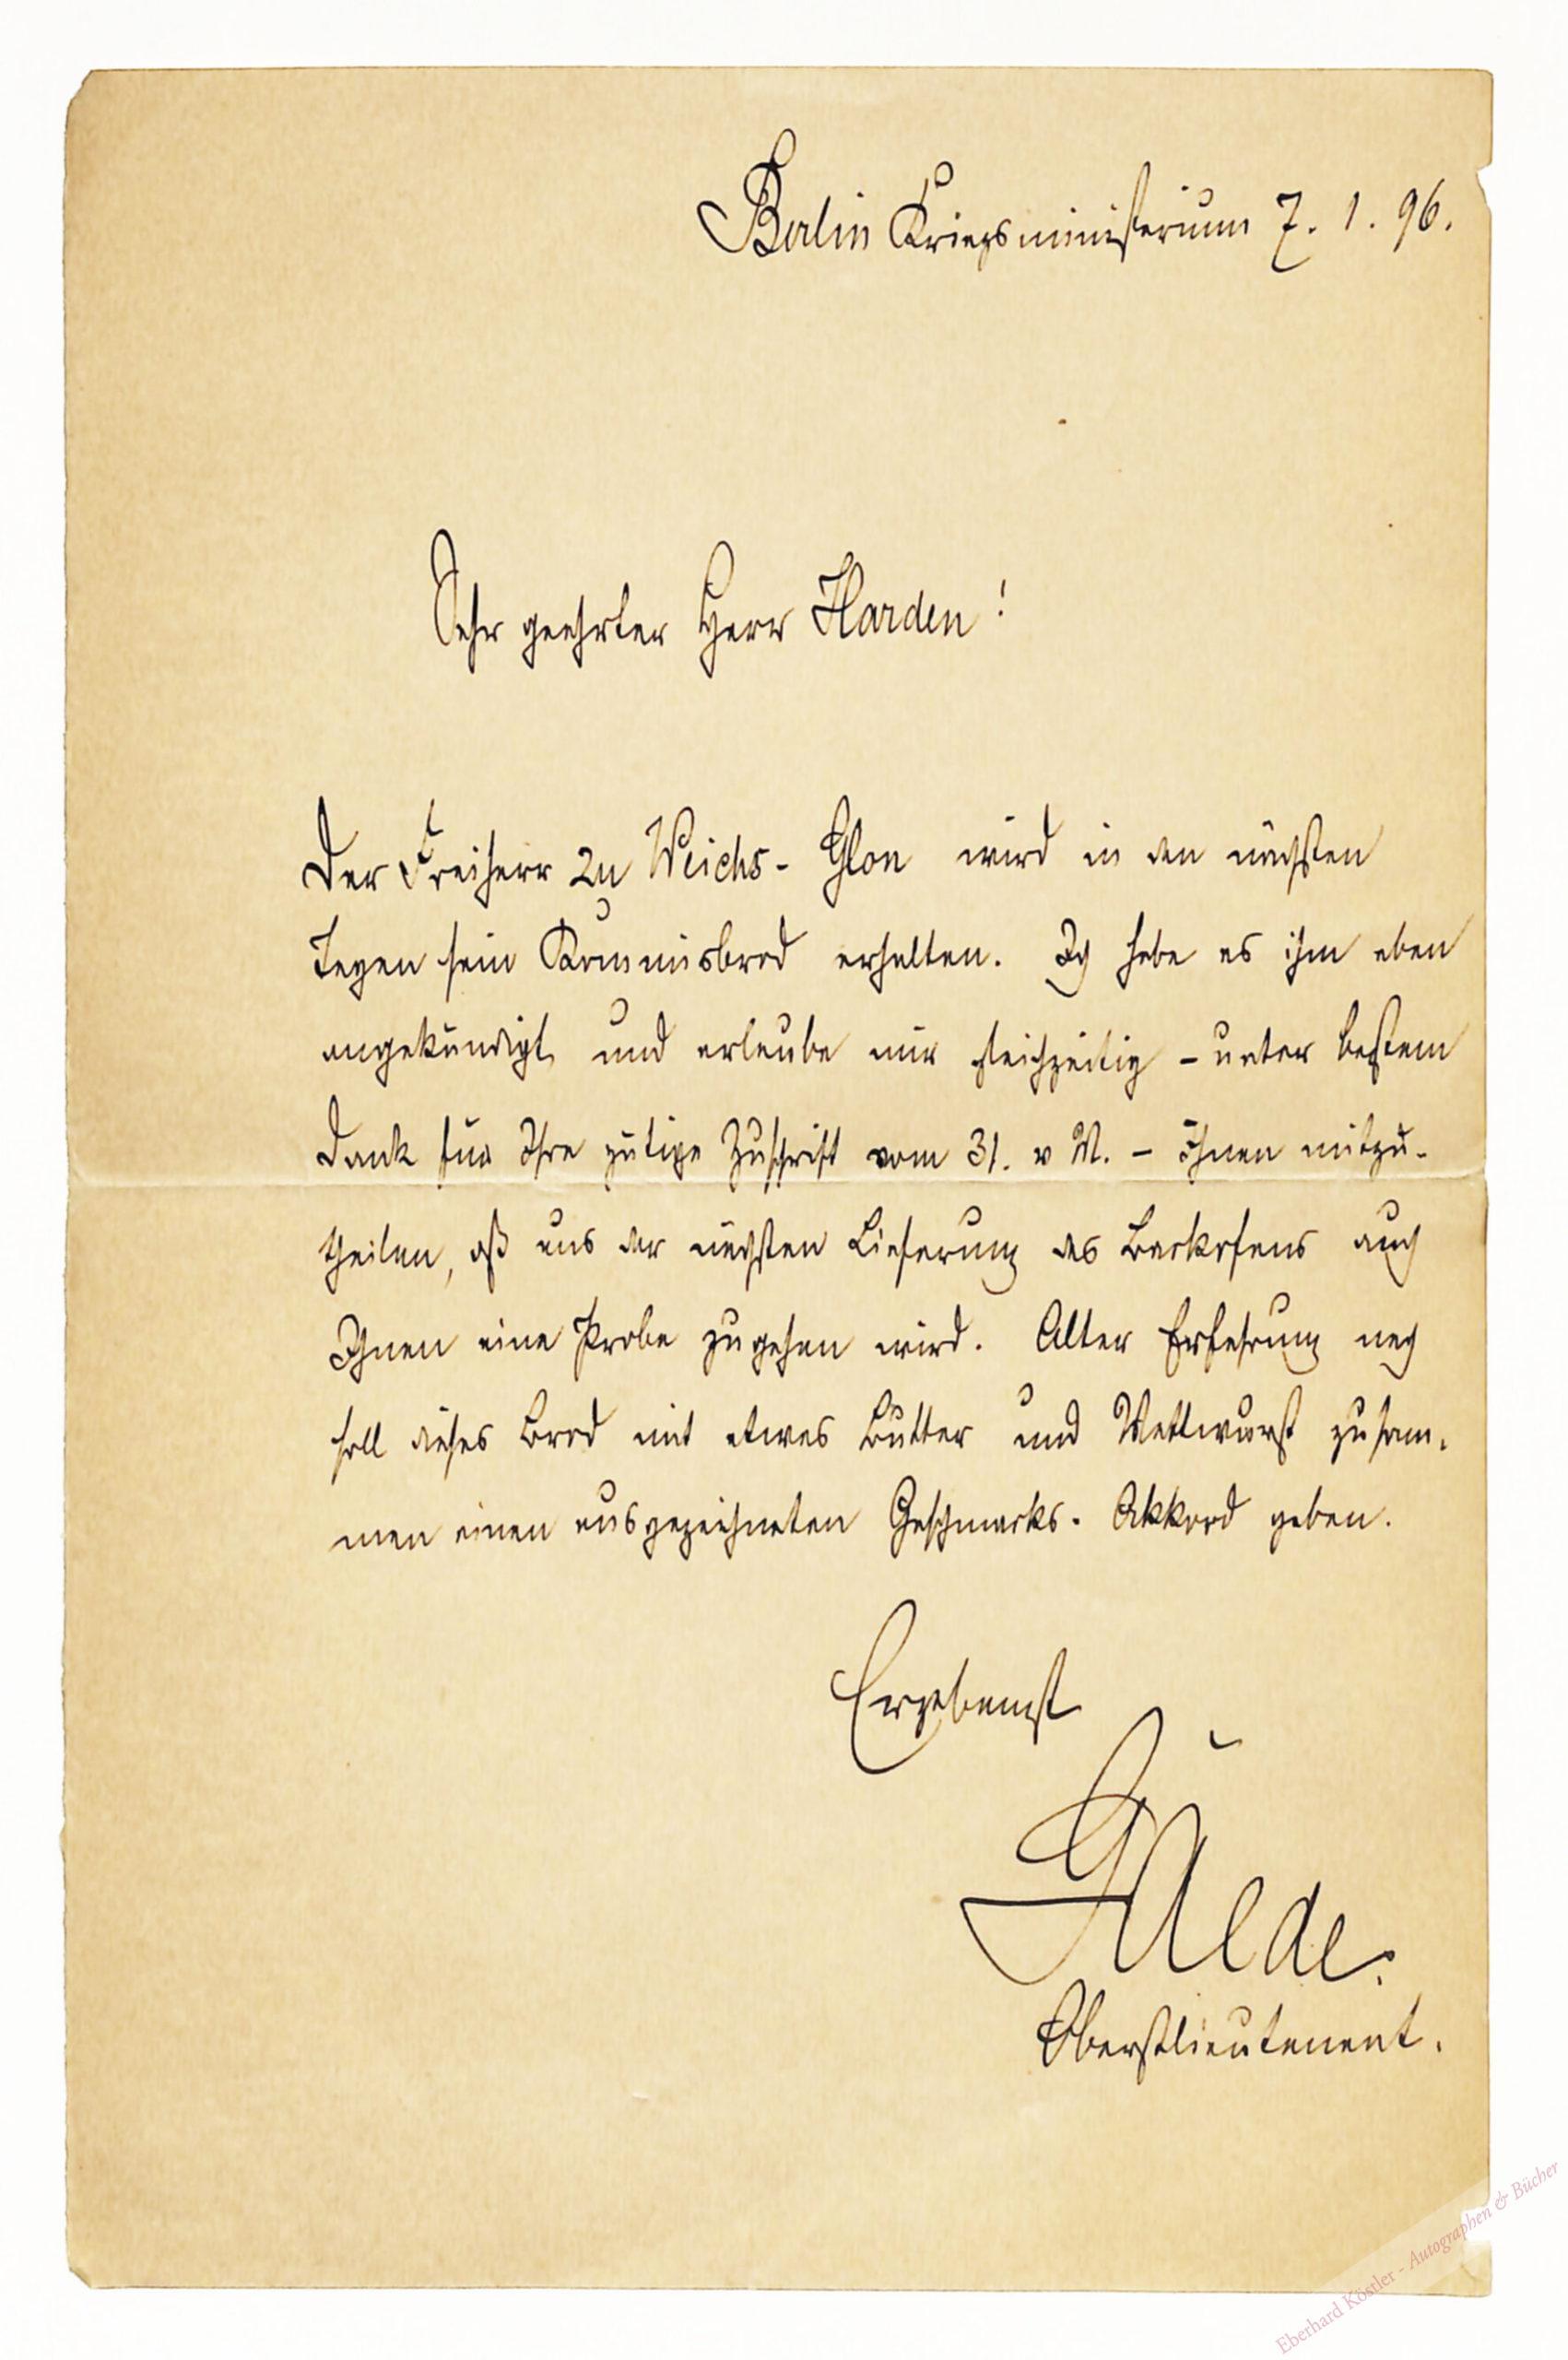 Berlin Kriegsministerium 7. 1. 96.
Sehr geehrter Herr Harden!
Der Freiherr zu Weichs-Glon wird in den nächsten
Tagen sein Kommisbrod erhalten. Ich habe es ihm eben
angekündigt und erlaube mir gleichzeitig – unter bestem
Dank für Ihre gütige Zuschrift vom 31. v M. – Ihnen mitzu-
theilen, daß aus der nächsten Lieferung des Backofens auch
Ihnen eine Probe zugehen wird. Alter Erfahrung nach
soll dieses Brod mit etwas Butter und Mettwurst zusam-
men einen ausgezeichneten Geschmacks-Akkord geben.
Ergebenst
Gaede.
Oberstlieutenant.
Eberhard Köstler - Autographen & Bücher